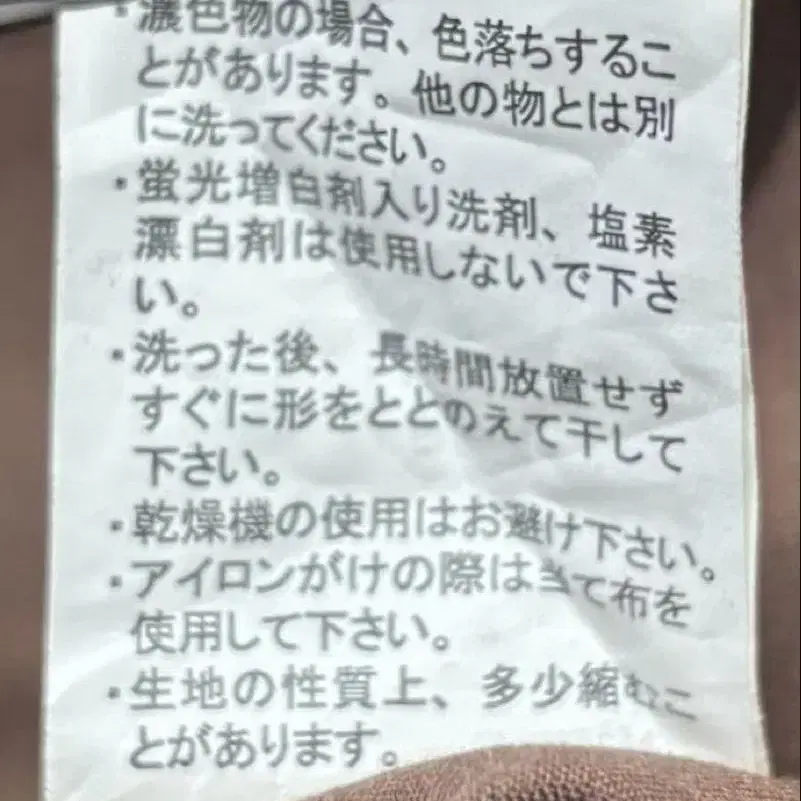 ・濃色物の場合、色落ちするこ
とがあります。他の物とは別
に洗ってください。
・蛍光増白剤入り洗剤、塩素
漂白剤は使用しないで下さ
い。
・洗った後、長時間放置せず
すぐに形をととのえて干して
下さい。
・乾燥機の使用はお避け下さい。
・アイロンがけの際は当て布を
使用して下さい。
・生地の性質上、多少縮むこ
とがあります。